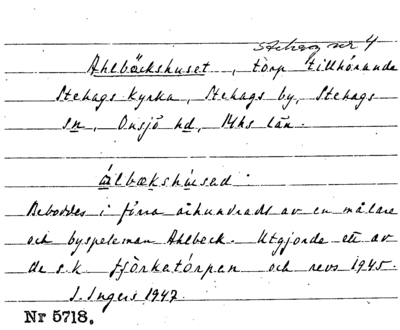 Stehag nr 4
Ahlbäckshuset, torp tillhörande
Stehags Kyrka, Stehags by, Stehags
sn, Onsjö hd, Mhs län.
ålbækshúsad.
Beboddes i förra århundradet av en målare
och byspeleman Ahlbeck. Utgjorde ett av
de s.k. fjörkatórpen och revs 1945.
I. Ingers 1947.
Nr 5718.